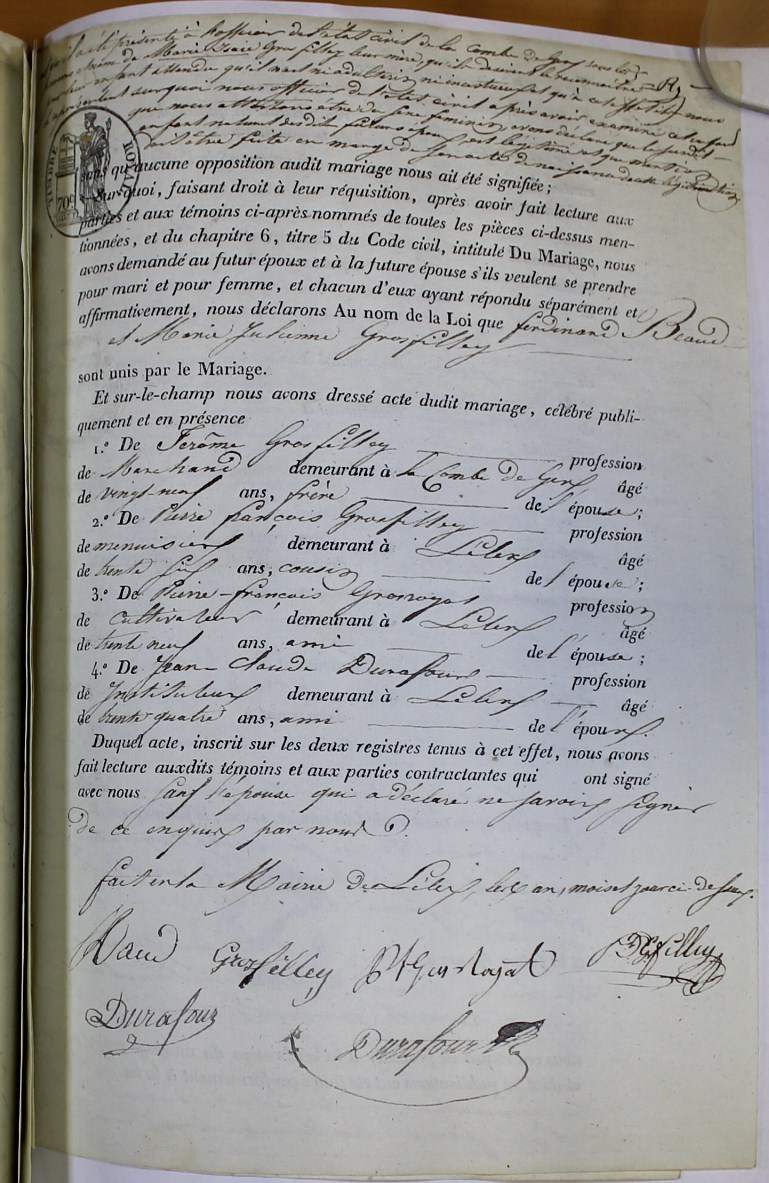 présenté à l'officier de l'état civil de la combe de Gers
Marie Gros filley leur mère, qu'ils désirent le reconnaître
enfant attendu qu'il n'est ni adultérin ni incestueux
surquoi nous officier de l'état civil après avoir examiné
que nous attestons être du sexe féminin avons déclaré que
enfant naturel desdits futurs époux est légitimé
être faite en marge de son acte de naissance
TIMBRE ROYAL
70c
sans qu'aucune opposition audit mariage nous ait été signifiée ;
Sur-quoi, faisant droit à leur réquisition, après avoir fait lecture aux
parties et aux témoins ci-après nommés de toutes les pièces ci-dessus men-
tionnées, et du chapitre 6, titre 5 du Code civil, intitulé Du Mariage, nous
avons demandé au futur époux et à la future épouse s'ils veulent se prendre
pour mari et pour femme, et chacun d'eux ayant répondu séparément et
affirmativement, nous déclarons Au nom de la Loi que ferdinand Beaud
et Marie Julienne Grosfilley
sont unis par le Mariage.
Et sur-le-champ nous avons dressé acte dudit mariage, célébré publi-
quement et en présence
1.º De Jérôme Grosfilley profession
de Marchand demeurant à la Combe de Gers âgé
de vingt-neuf ans, frère de l'épouse ;
2.º De Pierre françois Grosfilley profession
de menuisier demeurant à Lélex âgé
de trente six ans, cousin de l'épouse ;
3.º De Pierre-françois Grosroyat profession
de cultivateur demeurant à Lélex âgé
de trente neuf ans, ami de l'épouse ;
4.º De Jean-Claude Durafour profession
de Instituteur demeurant à Lélex âgé
de trente quatre ans, ami de l'époux.
Duquel acte, inscrit sur les deux registres tenus à cet effet, nous avons
fait lecture auxdits témoins et aux parties contractantes qui ont signé
avec nous sauf l'épouse qui a déclaré ne savoir signer
de ce enquis par nous.
fait en la Mairie de Lélex, les an, mois et jour ci-dessus.
Baud Grosfilley Grosroyat Gfilley
Durafour
Durafour